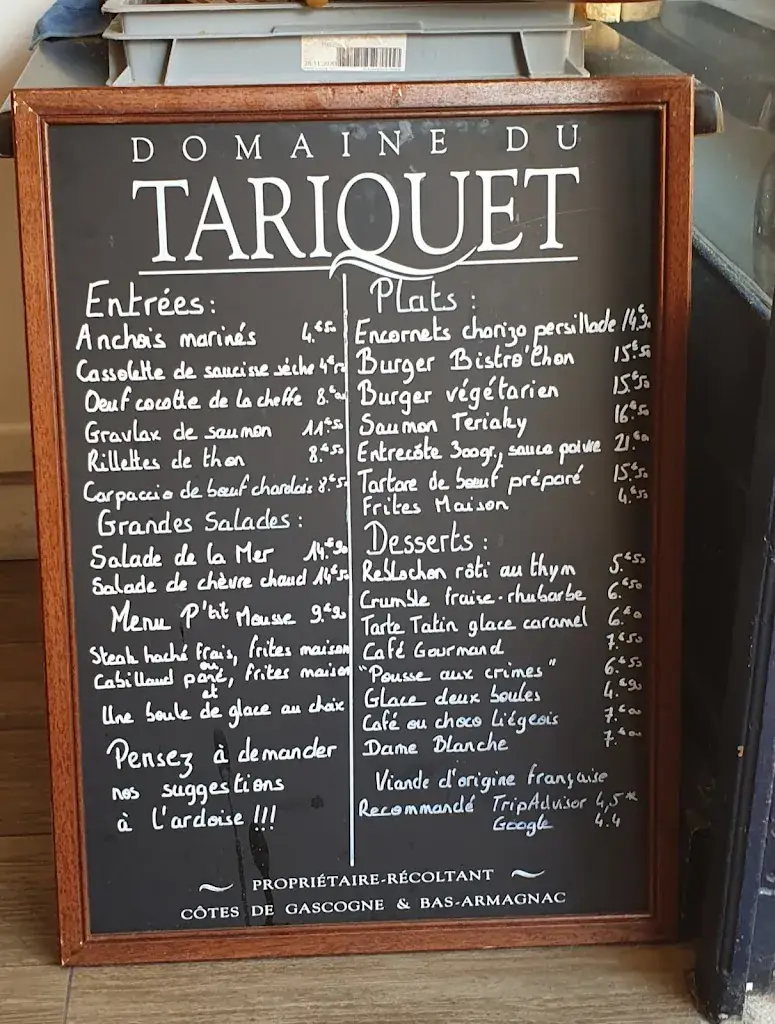 DOMAINE DU
TARIQUET
Entrées:
Anchois marinés 4.€50
Cassolette de saucisse sèche
Oeuf cocotte de la cheffe
Gravlax de saumon 11€50
Rillettes de thon 8.€50
Carpaccio de bœuf charolais 8€50
Grandes Salades:
Salade de la Mer 14.€90
Salade de chèvre chaud 14€50
Menu P'tit Mousse 9.€90
Steak haché frais, frites maison
ou
Cabillaud pané, frites maison
et
Une boule de glace au choix
Pensez à demander
nos suggestions
à l'ardoise !!!
Plats:
Encornets chorizo persillade
Burger Bistro'thon 15€50
Burger végétarien 15€50
Saumon Teriaky 16€50
Entrecôte 300gr, sauce poivre 21.€00
Tartare de bœuf préparé 15€50
Frites Maison 4.€50
Desserts:
Reblochon rôti au thym 5.€50
Crumble fraise-rhubarbe 6.€50
Tarte Tatin glace caramel
Café Gourmand 7.€50
"Pousse aux crimes" 6.€50
Glace deux boules 4.€90
Café ou choco liégeois 7.€00
Dame Blanche 7.€00
Viande d'origine française
Recommandé TripAdvisor 4,5*
Google 4.4
PROPRIÉTAIRE-RÉCOLTANT
CÔTES DE GASCOGNE & BAS-ARMAGNAC